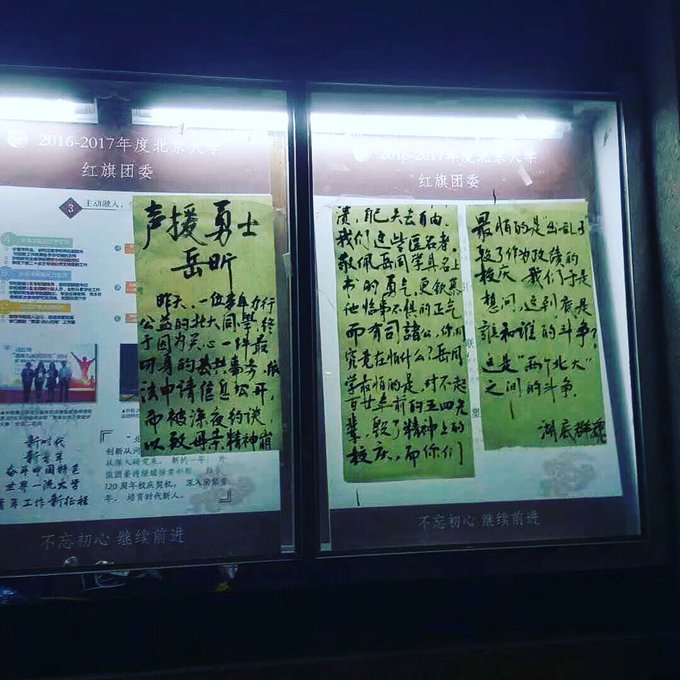 2016-2017年度北京大学
红旗团委
3 主动融入
声援勇士
岳昕
昨天,一位多年力行
公益的北大同学,终
于因为关心一件最
切身的公共事务,依
法申请信息公开,
而被深夜约谈,
以致母亲精神崩
新时代
新青年
奋斗中国特色
世界一流大学
青年工作新征程
创新
120周年校庆契机,深入团聚青
年,培育时代新人。
不忘初心 继续前进
2016-2017年度北京大学
红旗团委
溃,自己失去自由。
我们这些匿名者,
敬佩岳同学具名上
书的勇气,更钦羡
他临事不惧的正气
而有司諸公,你们
究竟在怕什么?岳同
学最怕的是,对不起
百廿年前的五四先
辈,毁了精神上的
校庆,而你们
最怕的是“出乱子”
毁了作为政绩的
校庆。我们于是
想问,这到底是
誰和谁的斗争?
这是“两个北大”
之间的斗争。
湖底群魂
不忘初心 继续前进